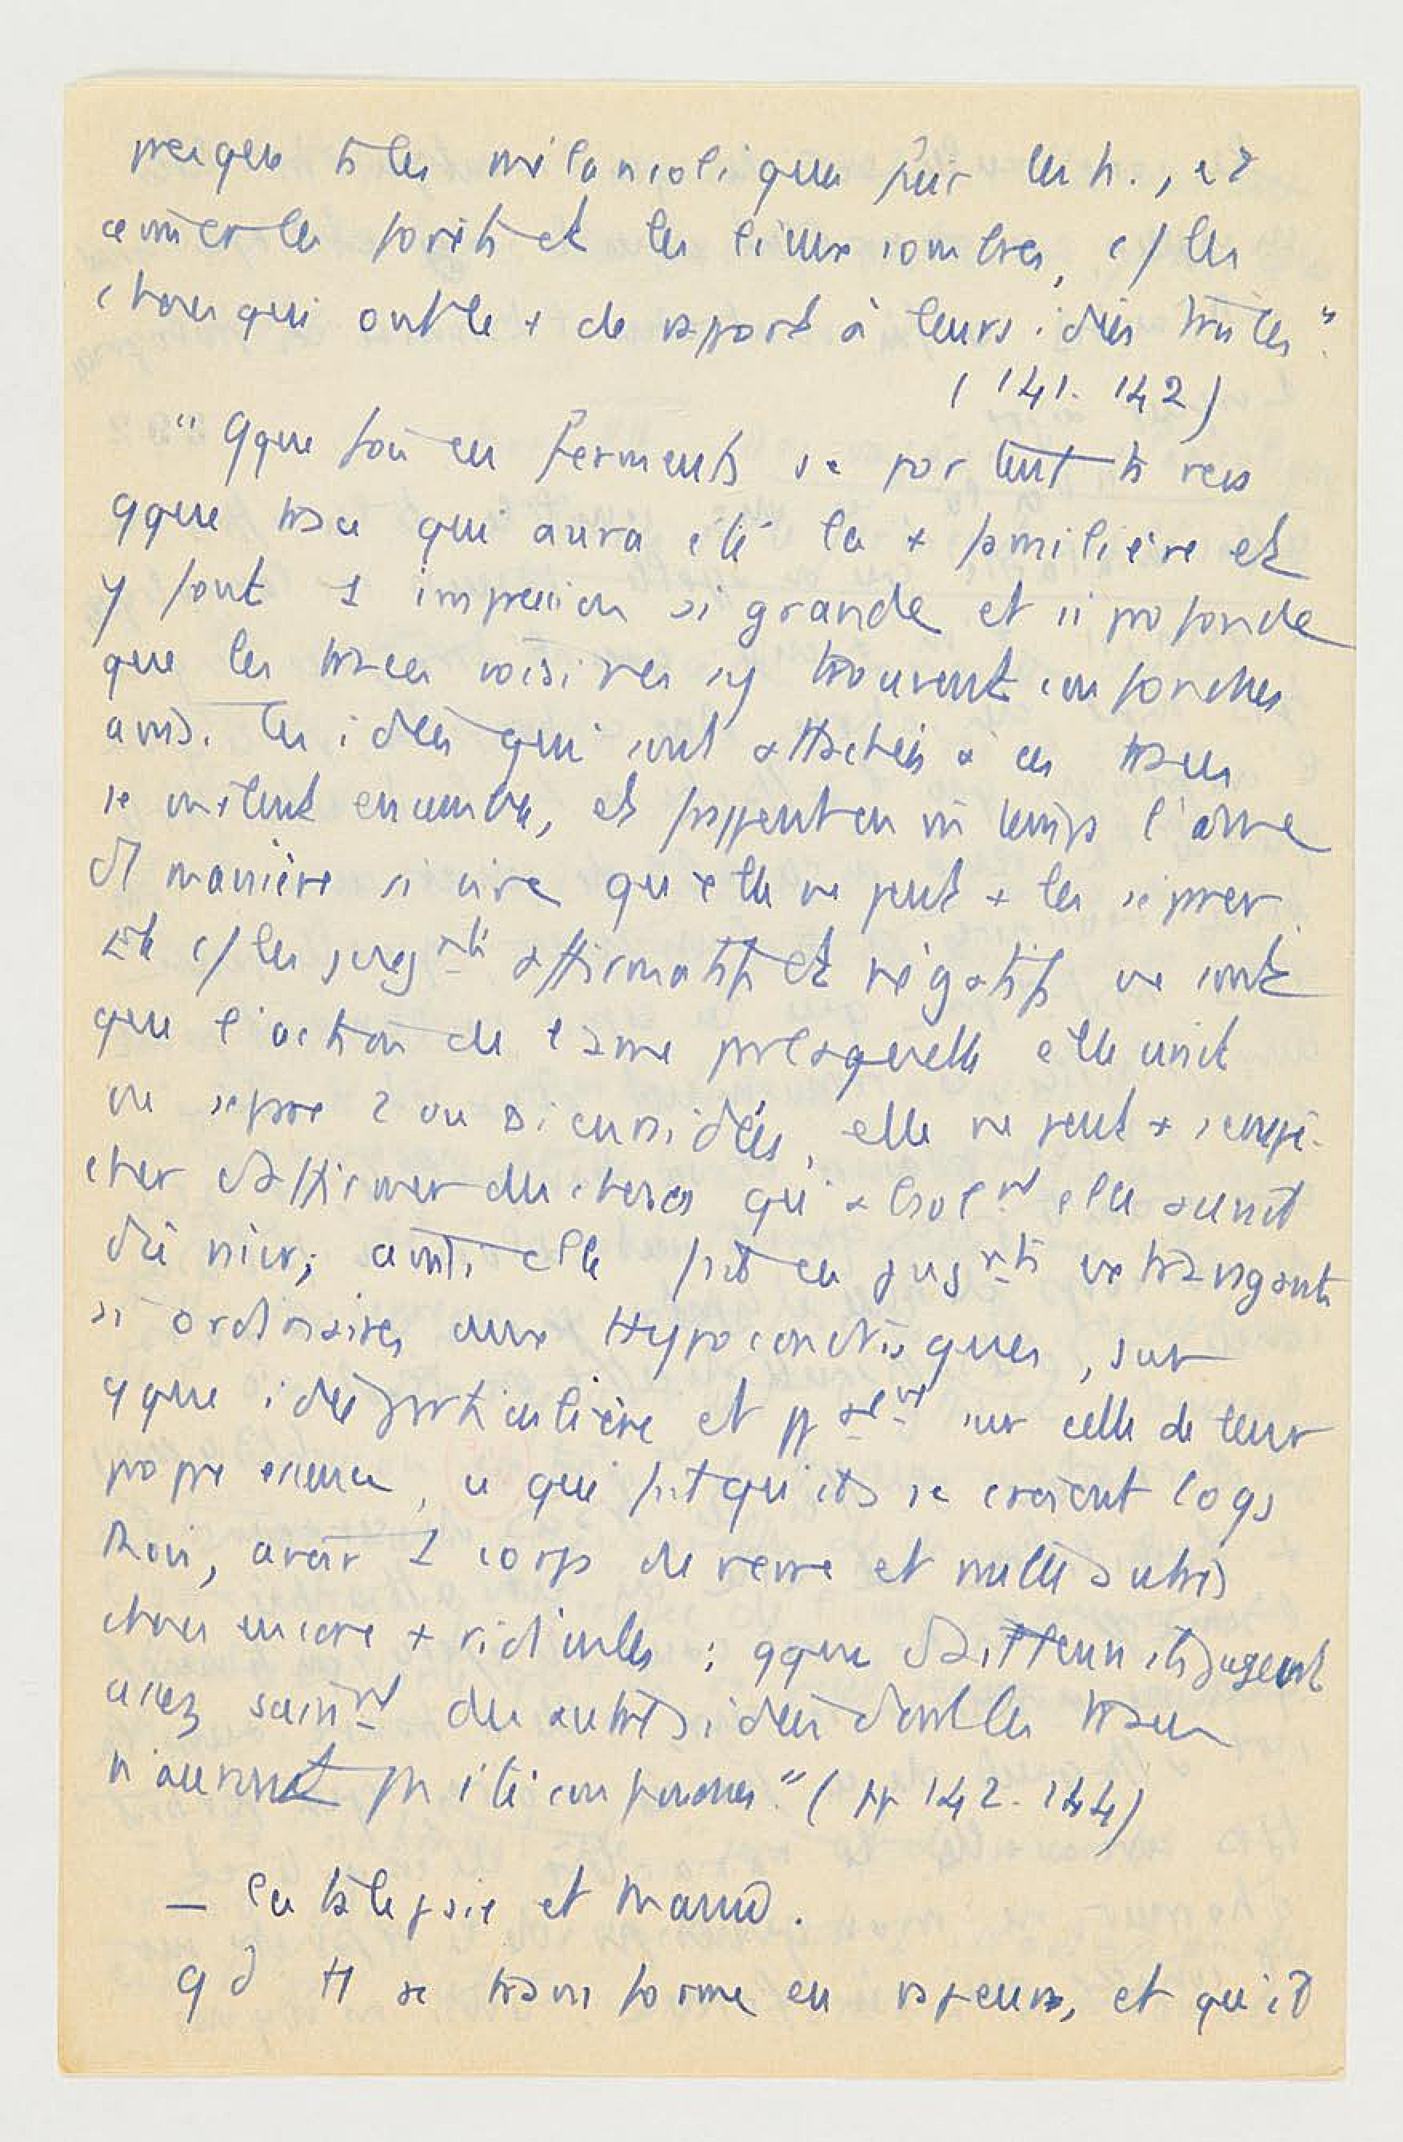 presque ts les mélancoliques fuir les h., et
aimer les forêts et les lieux sombres, c/ les
choses qui ont le + de rapport à leurs idées tristes".
(141-142)
"Qque fois ces ferments se portent ts vers
qque trace qui aura été la + familière et
y font 1 impression si grande et si profonde
que les traces voisines s'y trouvent confondues
ainsi les idées qui sont attachées à ces traces
se mêlent ensemble, et frappent en m̄ temps l'âme
d'1 manière si vive qu'elle ne peut + les séparer.
Et c/ les jugmts affirmatifs et négatifs ne sont
que l'action de l'âme par laquelle elle unit
ou sépare 2 ou plusieurs idées, elle ne peut + s'empê-
cher d'affirmer des choses qu'absolmt elle aurait
dû nier; ainsi elle fait ces jugmts extravagants
si ordinaires aux Hypocondriaques, sur
qque idée particulière et ppalemt sur celle de leur
propre essence, ce qui fait qu'ils se croient coqs
Rois, avoir 1 corps de verre et mille autres
choses encore + ridicules ; qque d'ailleurs ils jugent
assez sainmt des autres idées dont les traces
n'auront pas été confondues." (pp 142-144)
— Catalepsie et Manie.
qd H se transforme en vapeurs, et qu'il